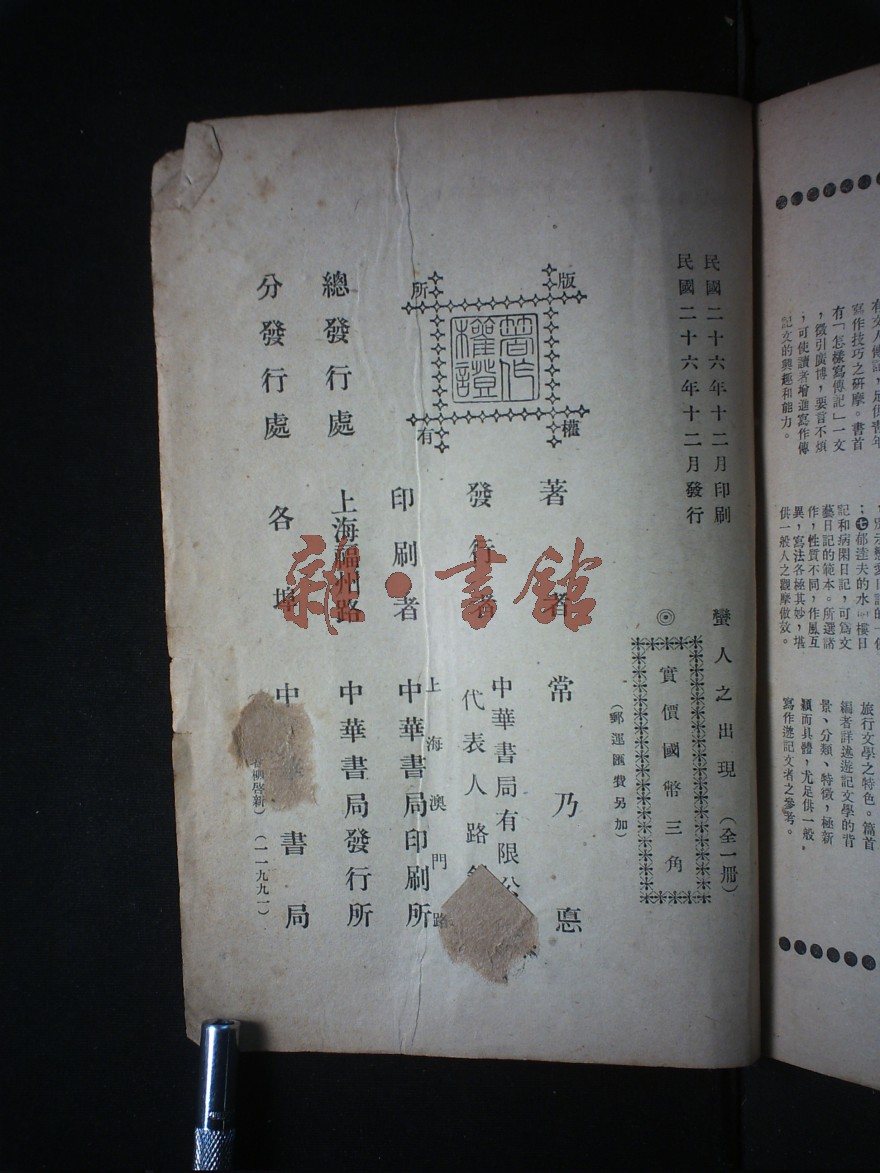 有「怎樣寫傳記」一文
，徵引廣博，要言不煩
；可使讀者增進寫作傳
記文的興趣和能力。
記和病閑日記，可爲文
藝日記的範本。所選諸
作，性質不同，作風互
異，寫法各極其妙，堪
供一般人之觀摩倣效。
旅行文學之特色。篇首
編者詳述遊記文學的背
景、分類、特徵，極新
穎而具體，尤足供一般
寫作遊記文者之參考。
民國二十六年十二月印刷
民國二十六年十二月發行
蠻人之出現（全一册）
◎實價國幣三角
（郵運匯費另加）
版權所有
著作權證
著者 常乃悳
發行者 中華書局有限公
代表人路
印刷者 上海澳門路
中華書局印刷所
總發行處 上海福州路 中華書局發行所
分發行處 各埠 中 書局
啓新）（一一九九一）
雜·書館